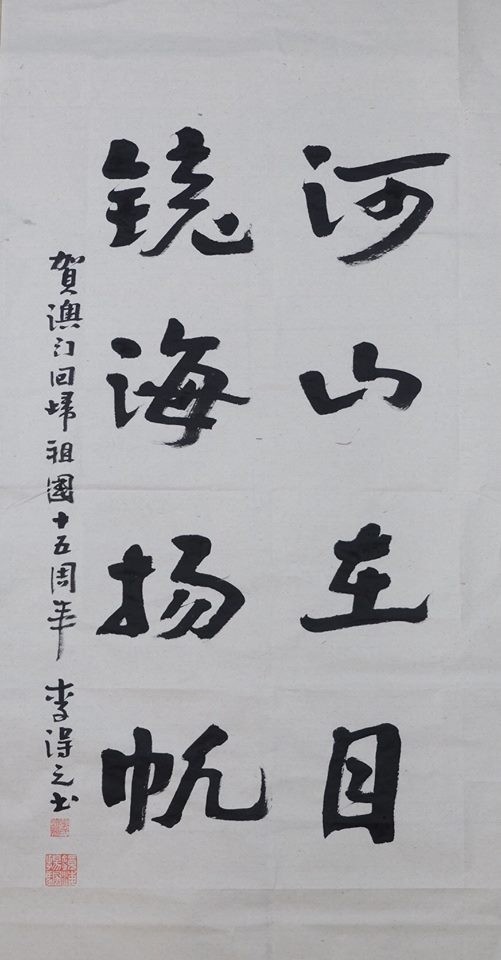 河山在目
鏡海扬帆
賀澳门回歸祖國十五周年 李得之书